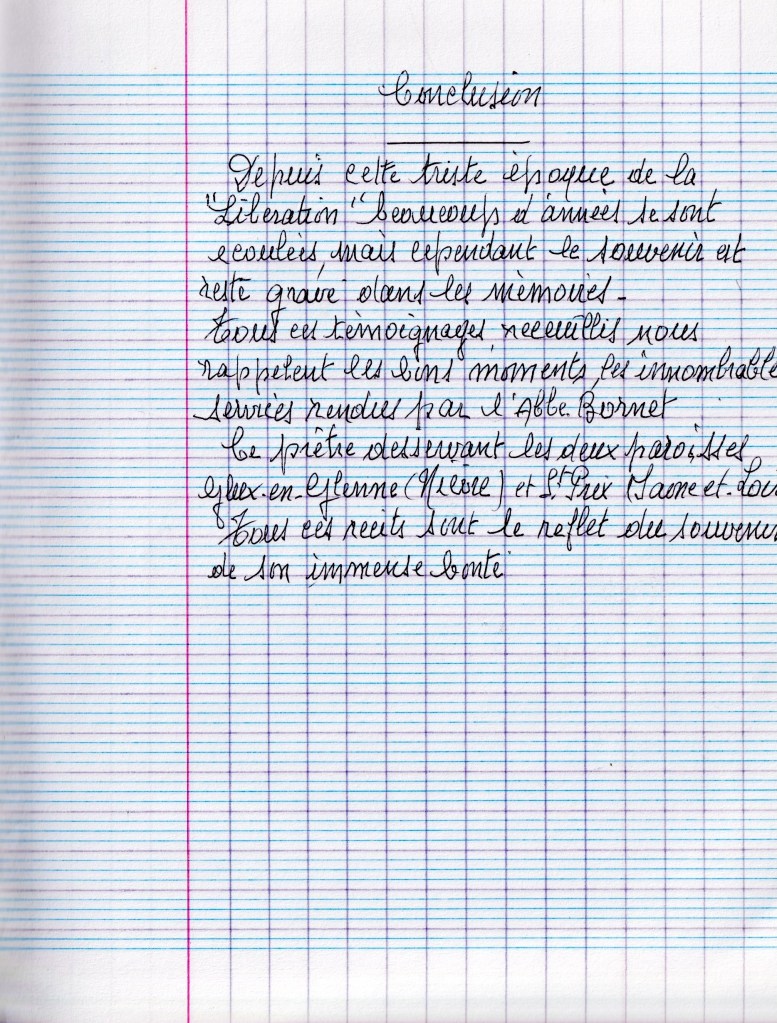 Conclusion
Depuis cette triste époque de la
"Libération" beaucoup d'années se sont
écoulées, mais cependant le souvenir est
resté gravé dans les mémoires -
Tous ces témoignages receuillis nous
rappelent les bons moments, les innombrable
services rendus par l'Abbé Bornet
Ce prêtre desservant les deux paroisses
Glux-en-Glenne (Nièvre) et St Prix (Saone et-Loi
Tous ces récits sont le reflet du souvenir
de son immense bonté